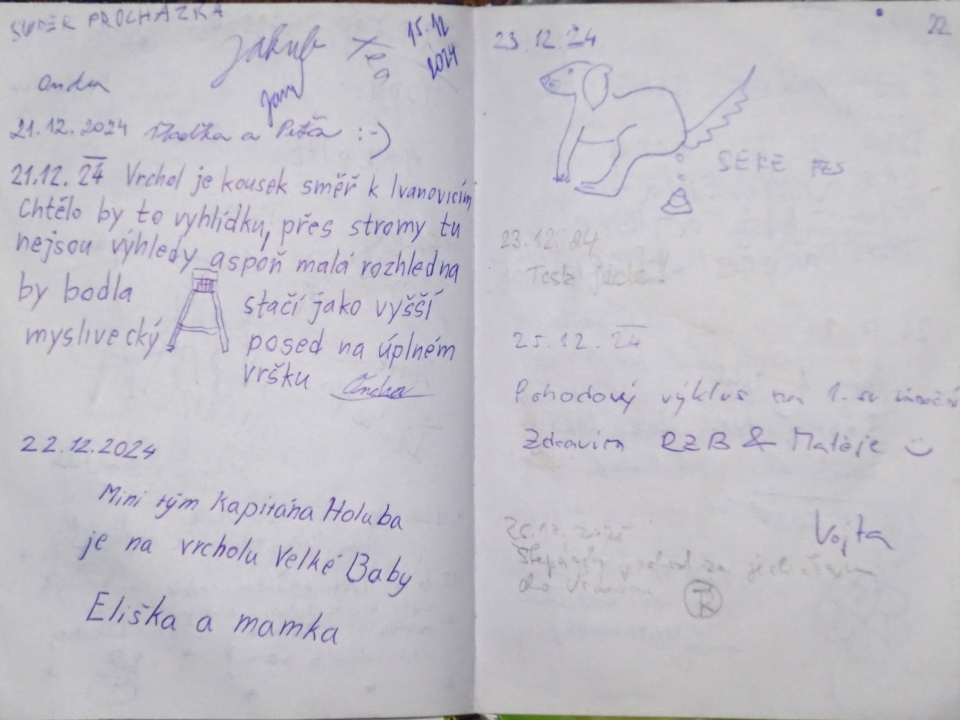 SUPER PROCHÁZKA
Jakub
15.12
2024
Jana
Ondra
21.12.2024 a Péťa :-)
21.12.24 Vrchol je kousek směř k Ivanovicím
Chtělo by to vyhlídku, přes stromy tu
nejsou výhledy aspoň malá rozhledna
by bodla stačí jako vyšší
myslivecký posed na úplném
vršku Ondra
22.12.2024
Mini tým Kapitána Holuba
je na vrcholu Velké Baby
Eliška a mamka
22
23.12.24
SERE PES
23.12.24
25.12.24
Pohodový výklus na 1. sv. vánoční
Zdravím RZB & Matěje
Vojta